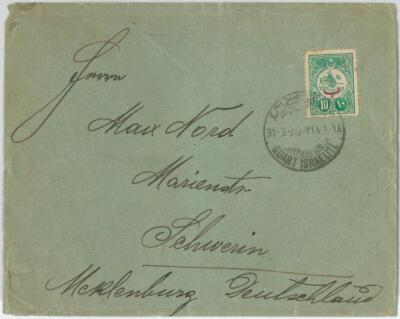 Herrn
Max Nord
Marienstr.
Schwerin
Mecklenburg Deutschland
10 ١٠
JERUSALEM
QUART ISRAELITE